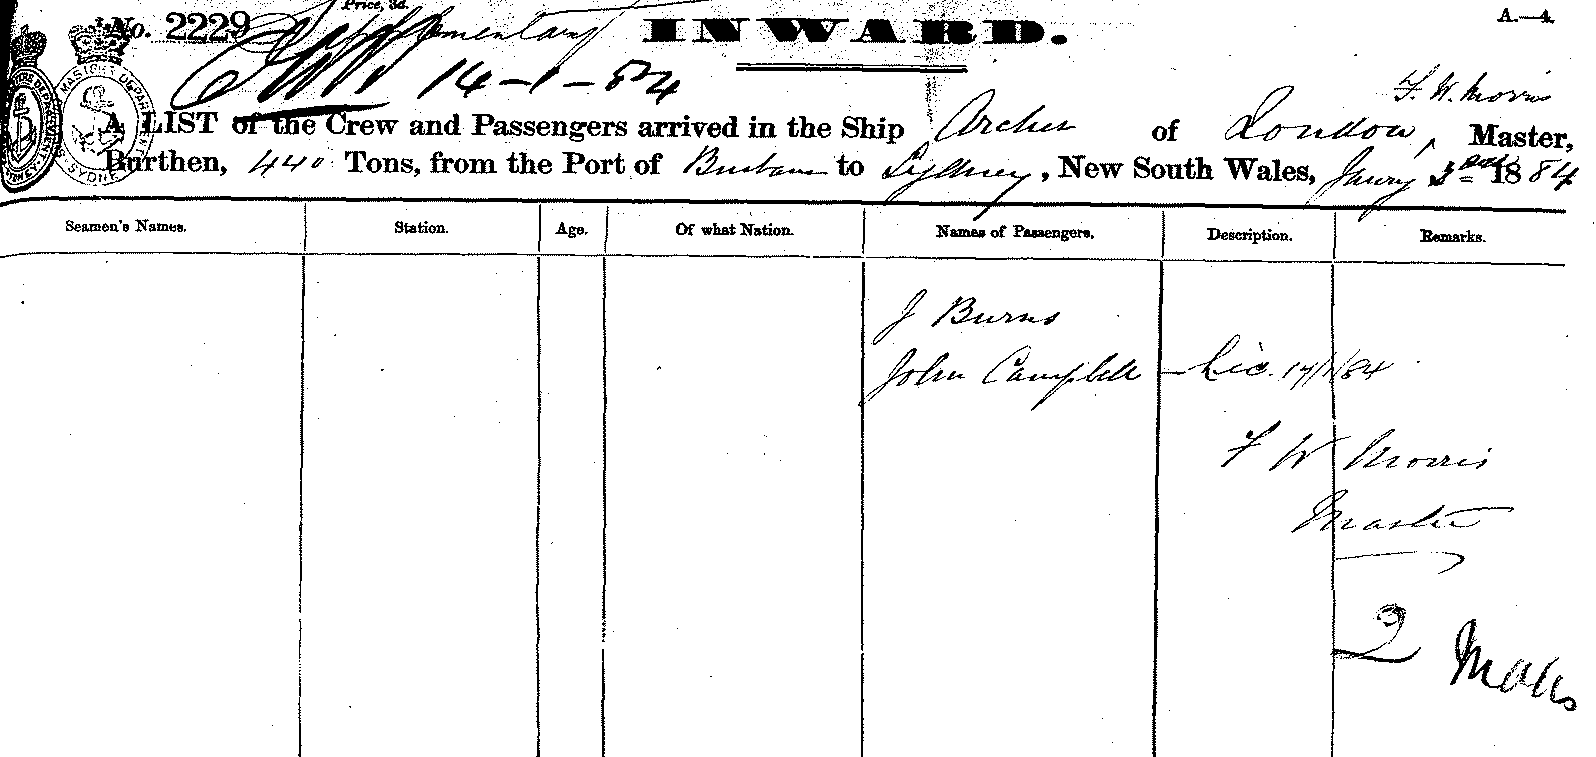 Price, 3d.
No. 2229
Supplementary
INWARD.
A.—4.
14-1-84
F. W. Morris
A LIST of the Crew and Passengers arrived in the Ship Archer of London, Master,
Burthen, 440 Tons, from the Port of Brisbane to Sydney, New South Wales, Janry 3rd 1884
Seamen's Names. Station. Age. Of what Nation. Names of Passengers. Description. Remarks.
J Burns
John Campbell — Lic. 17/1/84
F W Morris
Master
2 Males